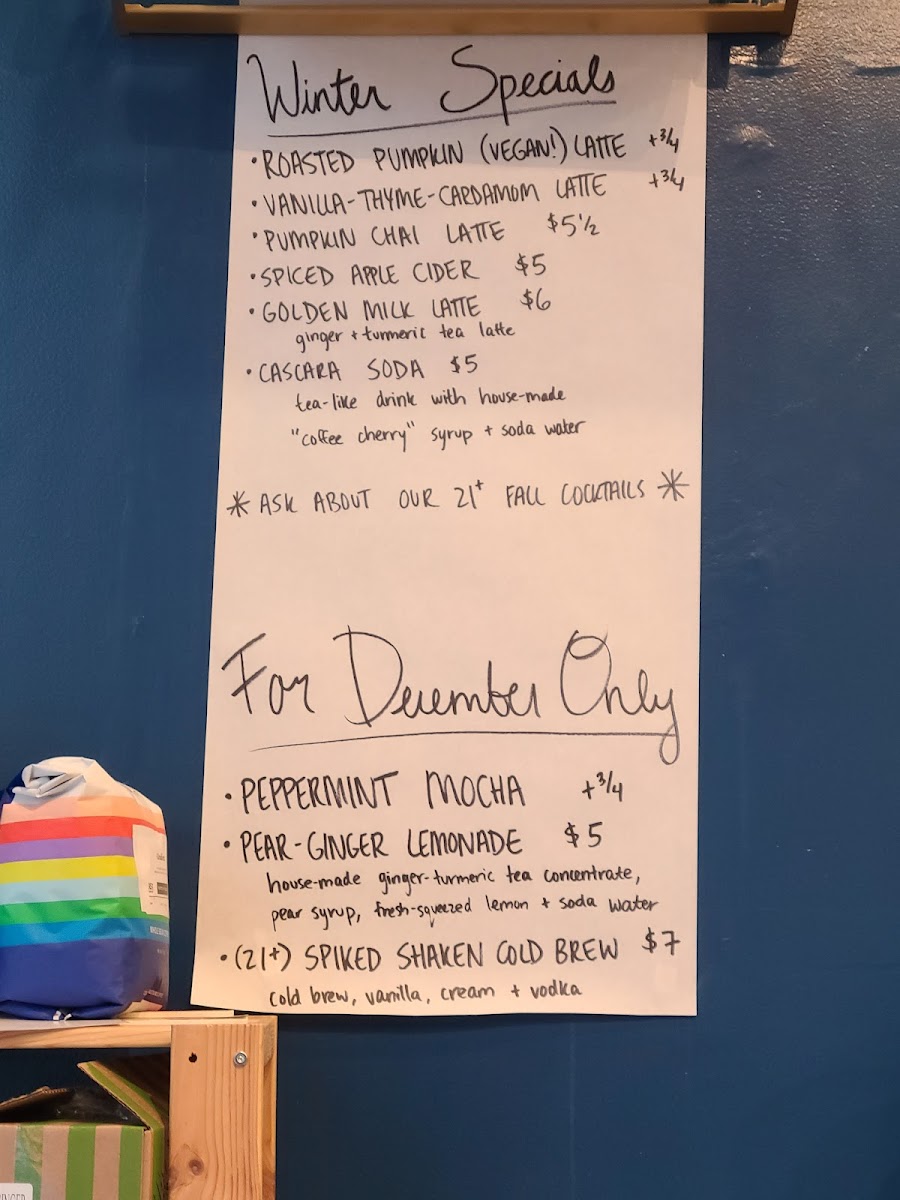 Winter Specials
• ROASTED PUMPKIN (VEGAN!) LATTE +3/4
• VANILLA-THYME-CARDAMOM LATTE +3/4
• PUMPKIN CHAI LATTE $5 1/2
• SPICED APPLE CIDER $5
• GOLDEN MILK LATTE $6
ginger + turmeric tea latte
• CASCARA SODA $5
tea-like drink with house-made
"coffee cherry" syrup + soda water
* ASK ABOUT OUR 21+ FALL COCKTAILS *
For December Only
• PEPPERMINT MOCHA +3/4
• PEAR-GINGER LEMONADE $5
house-made ginger-turmeric tea concentrate,
pear syrup, fresh-squeezed lemon + soda water
• (21+) SPIKED SHAKEN COLD BREW $7
cold brew, vanilla, cream + vodka